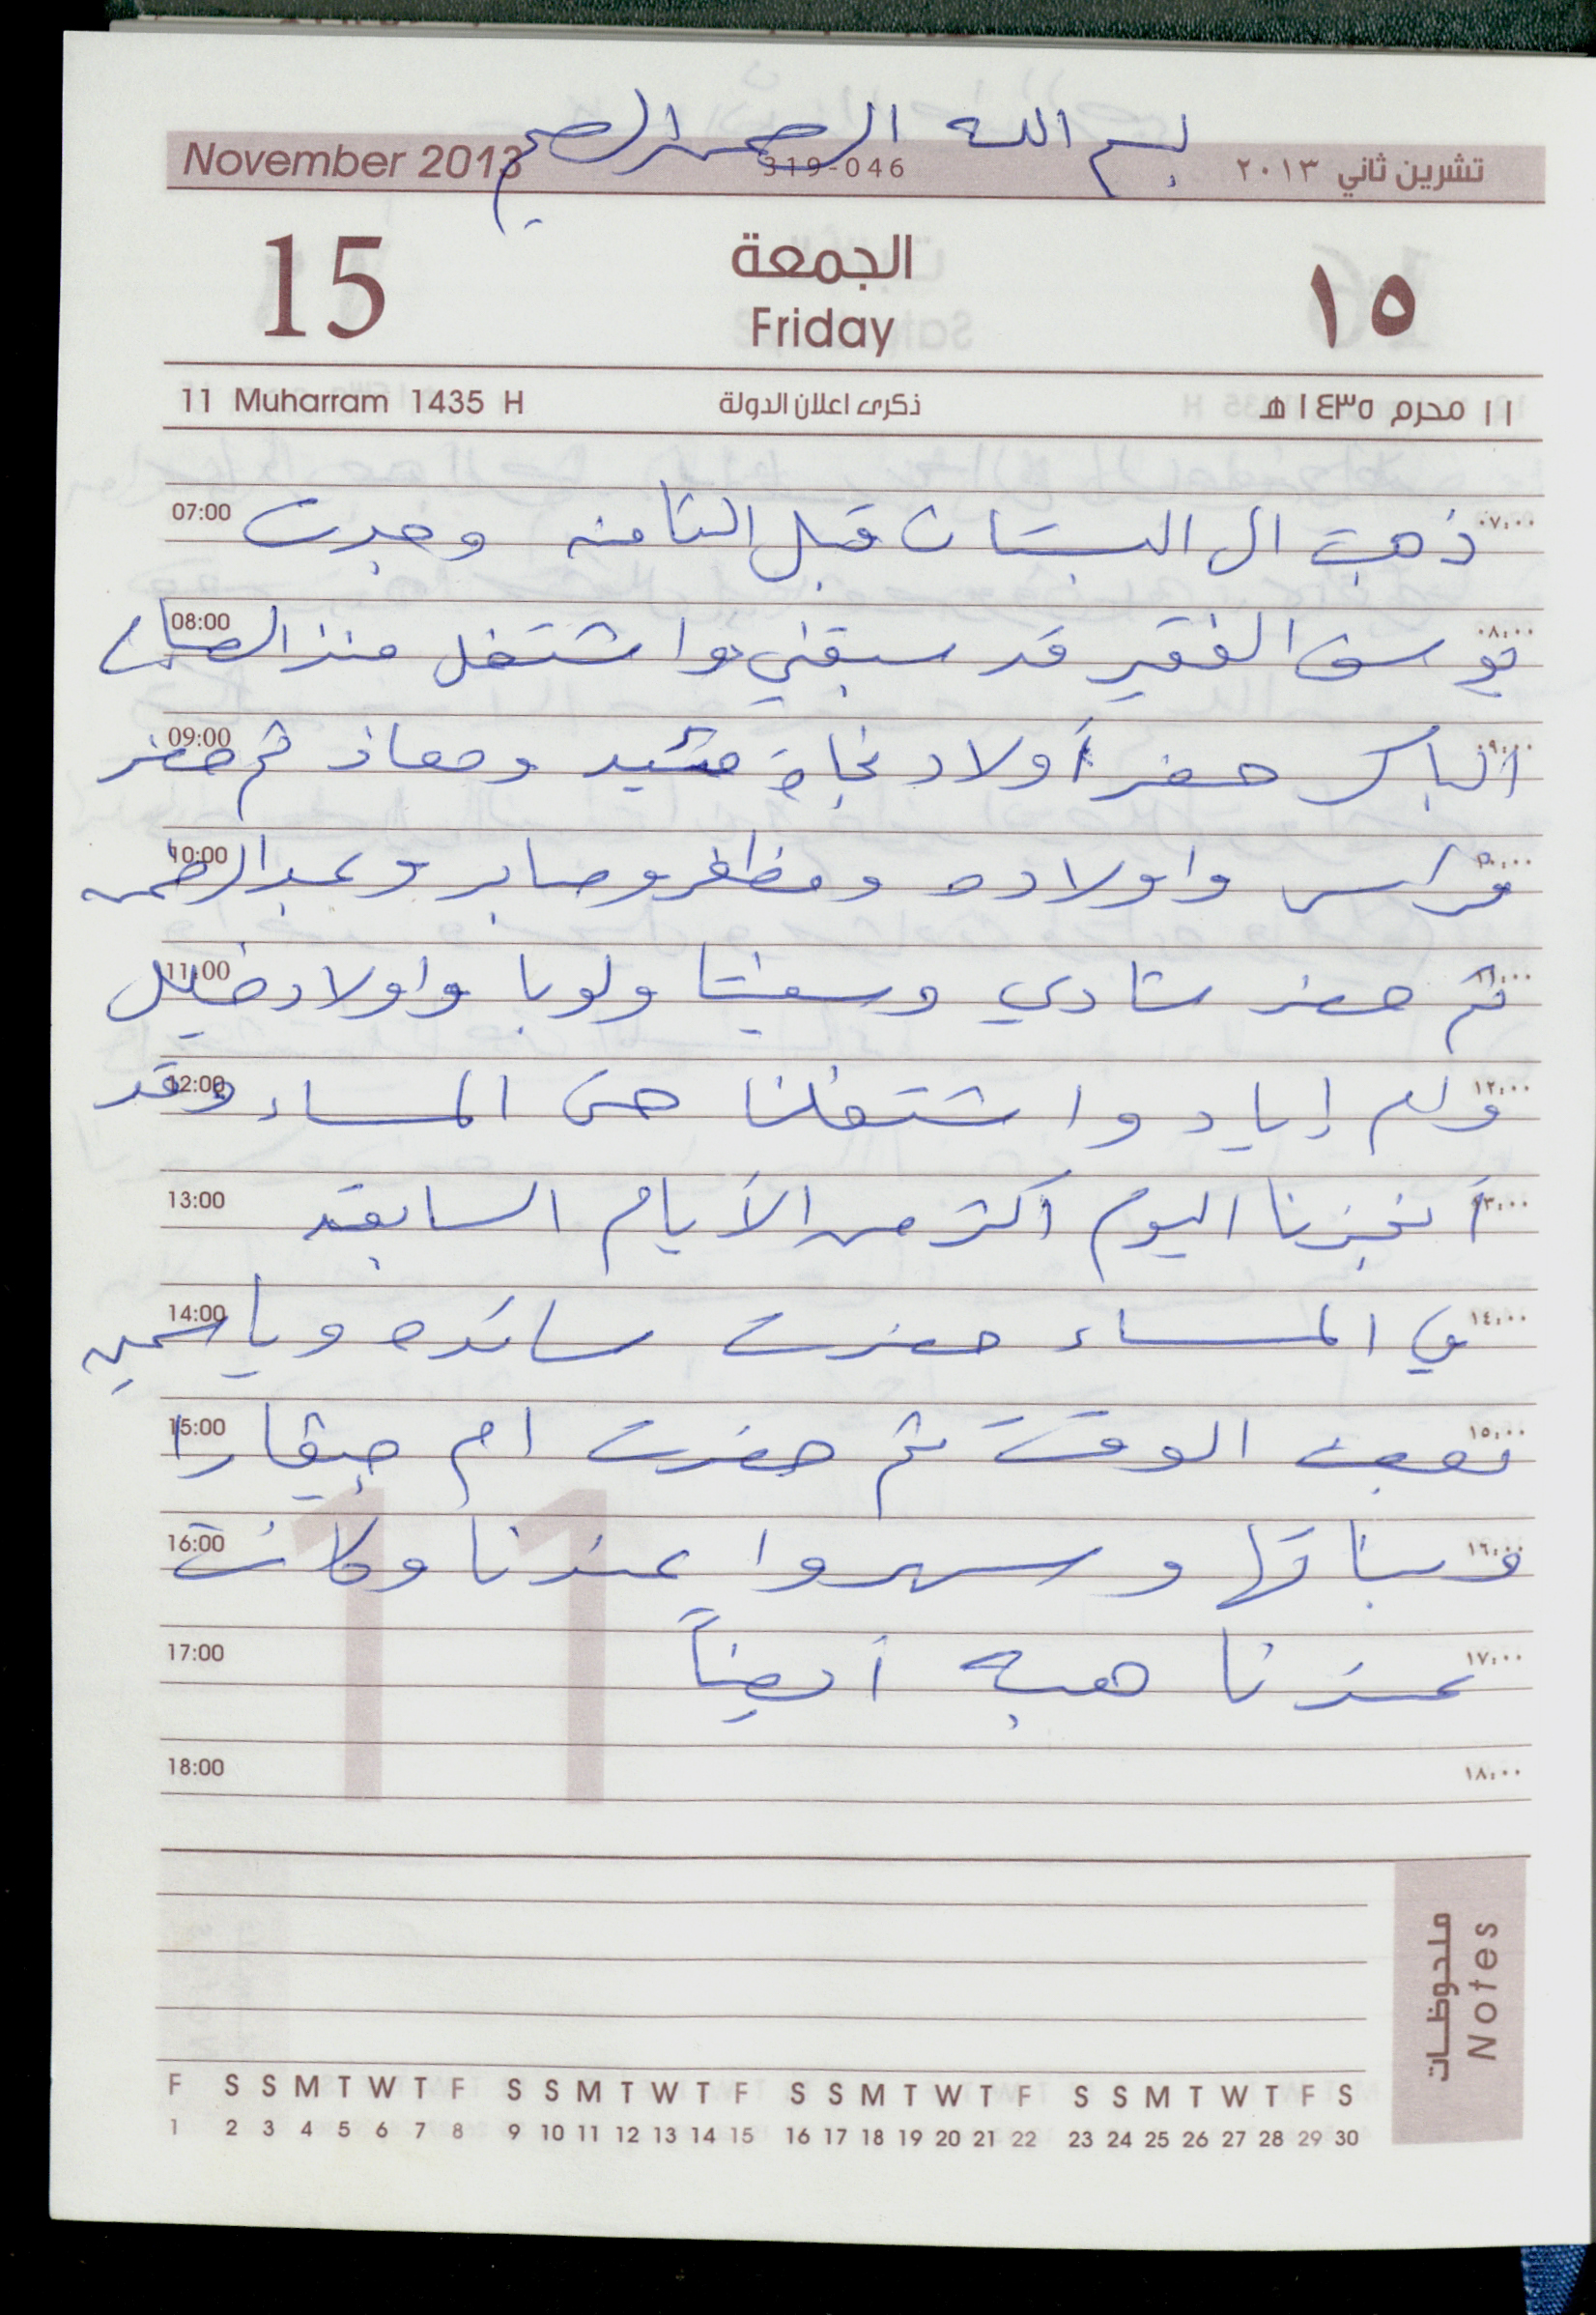 بسم الله الرحمن الرحيم
November 2013 319-046 تشرين ثاني ٢٠١٣
15 الجمعة ١٥
Friday
11 Muharram 1435 H ذكرى اعلان الدولة ١١ محرم ١٤٣٥ هـ
07:00 ذهبت الى البستان قبل الثامنه وجدت ٠٧:٠٠
08:00 يوسف الفقير قد سبقني واشتغل منذ الصباح ٠٨:٠٠
09:00 الباكر حضر أولاد نجاة مشيد ومعاذ ثم حضر ٠٩:٠٠
10:00 فراس واولاده ومظفر وصابر وعبدالرحمن ١٠:٠٠
11:00 ثم حضر شادي وسفيتا ولوبا واولاد خليل ١١:٠٠
12:00 ولم إياد واشتغلنا حتى المساء وقد ١٢:٠٠
13:00 أنجزنا اليوم أكثر من الأيام السابقه ١٣:٠٠
14:00 في المساء حضرت سائده وياسمين ١٤:٠٠
15:00 بعض الوقت ثم حضرت ام جيفارا ١٥:٠٠
16:00 وبناتها وسهروا عندنا وكانت ١٦:٠٠
17:00 عندنا هبه أيضاً ١٧:٠٠
18:00 ١٨:٠٠
11
ملحوظات
Notes
F S S M T W T F S S M T W T F S S M T W T F S S M T W T F S
1 2 3 4 5 6 7 8 9 10 11 12 13 14 15 16 17 18 19 20 21 22 23 24 25 26 27 28 29 30